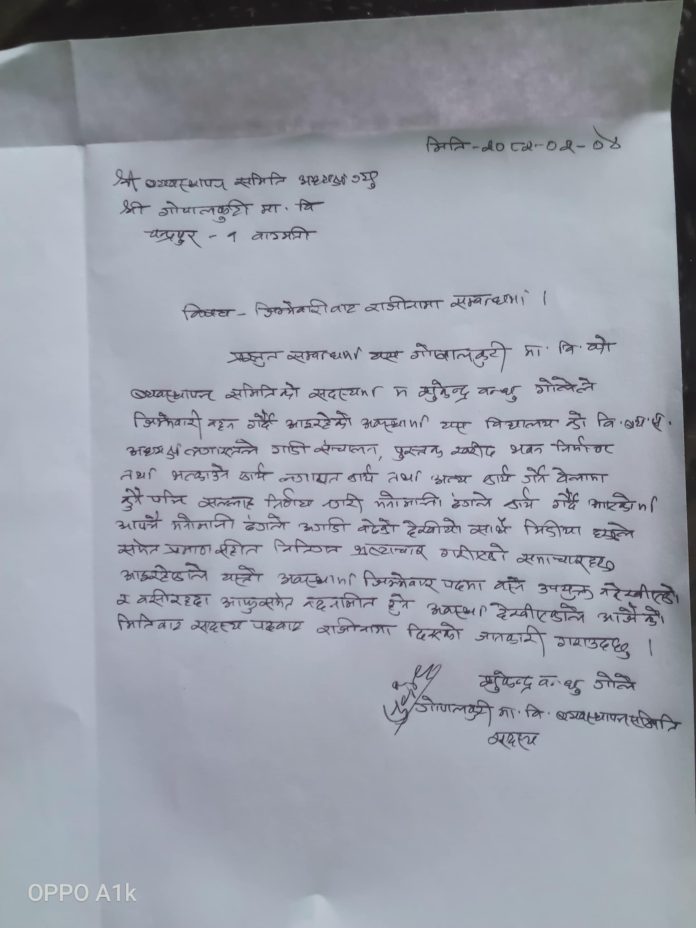 मिति-२०८२-०२-०४
श्री व्यवस्थापन समिति अध्यक्ष ज्यू
श्री गोपालकुटी मा. वि
चन्द्रपुर - १ बागमती
विषय - जिम्मेवारीबाट राजीनामा सम्बन्धमा ।
प्रस्तुत सम्बन्धमा यस गोपालकुटी मा. वि. को
व्यवस्थापन समितिको सदस्यमा म सुकेन्द्र बन्धु गोलेले
जिम्मेवारी वहन गर्दै आइरहेको अवस्थामा यस विद्यालय को वि. व्य. स.
अध्यक्ष लगायतले गाडी संचालन, पुस्तक खरीद भवन निर्माण
तथा भत्काउने कार्य लगायत कार्य तथा अन्य कार्य गर्ने बेलामा
कुनै पनि सल्लाह निर्णय नगरी मनोमानी ढंगले कार्य गर्दै आएकोमा
आफ्नै मनोमानी ढंगले अगाडी बढेको देखिएको साथै मिडिया हरूले
समेत प्रमाण सहित वित्तिय भ्रष्टाचार गरीएको समाचारहरु
आइरहेकाले यस्तो अवस्थामा जिम्मेवार पदमा बस्न उपयुक्त नदेखीएको
र बसीरहदा आफुसमेत बदनामित हुने अवस्था देखीएकोले आजैको
मितिबाट सदस्य पदबाट राजीनामा दिएको जानकारी गराउदछु ।
सुकेन्द्र बन्धु गोले
गोपालकुटी मा. वि. व्यवस्थापन समिति
सदस्य
OPPO A1k